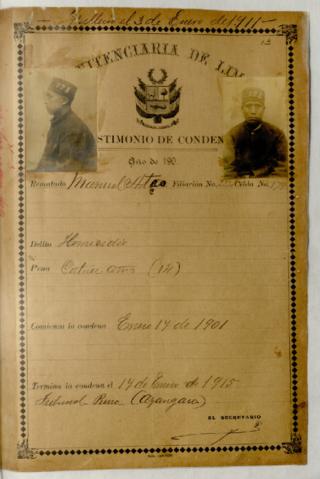 el 3 de Enero de 1911 -
13
PENITENCIARIA DE LIMA
TESTIMONIO DE CONDENA
Año de 190
Rematado Manuel Filiación No. Celda No.
Delito Homicidio
Pena Catorce años (14)
Comienza la condena Enero 14 de 1901
Termina la condena el 14 de Enero de 1915
Tribunal Puno (Azangaro)
EL SECRETARIO